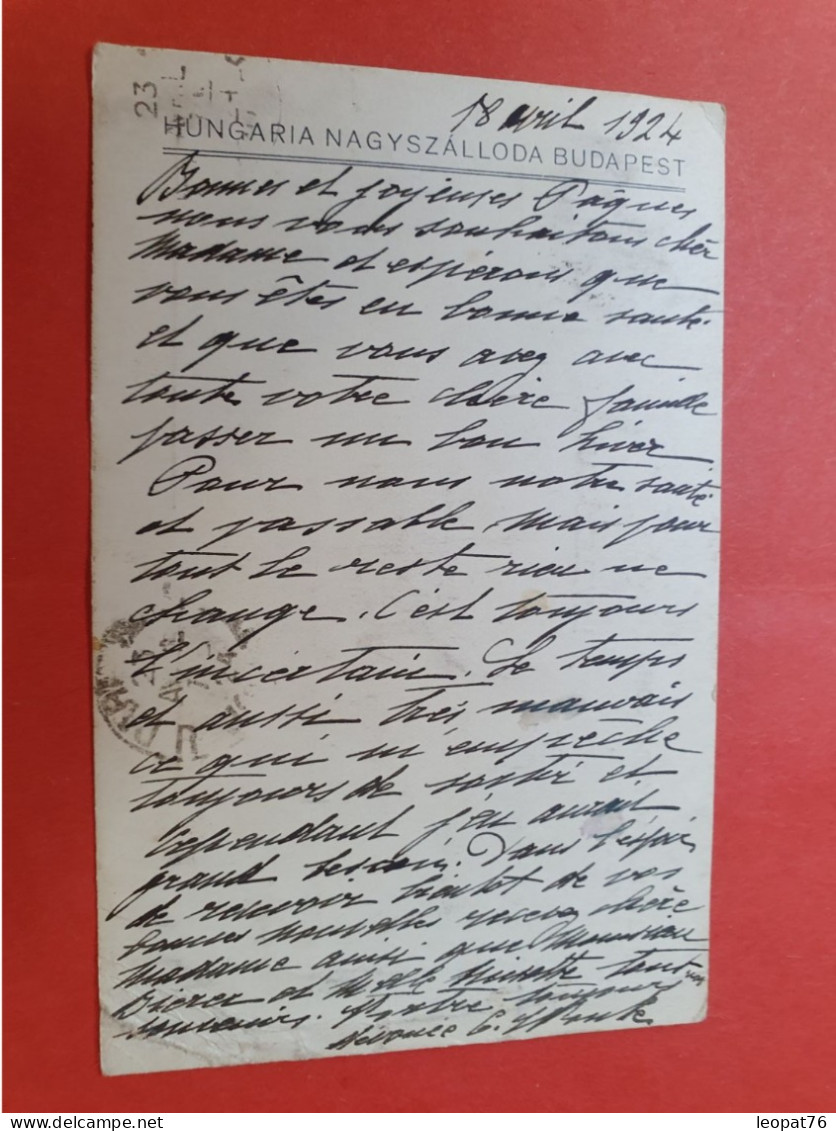 23
18 avril 1924
HUNGARIA NAGYSZÁLLODA BUDAPEST
Bonnes et joyeuses Pâques
nous vous souhaitons chèr
Madame et espérons que
vous êtes en bonne santé
et que vous avez avec
toute votre chère famille
passer un bon hiver
Pour nous notre santé
et passable mais pour
tout le reste rien ne
change. C'est toujours
l'incertain. Le temps
et aussi très mauvais
ce qui m'empêche
toujours de sortir et
cependant j'en aurait
grand besoin. Dans l'espoir
de recevoir bientot de vos
bonnes nouvelles recevez chère
Madame ainsi que Monsieur
et Melle tout nos
souvenirs. Votre toujours
dévouée C.
leopat76